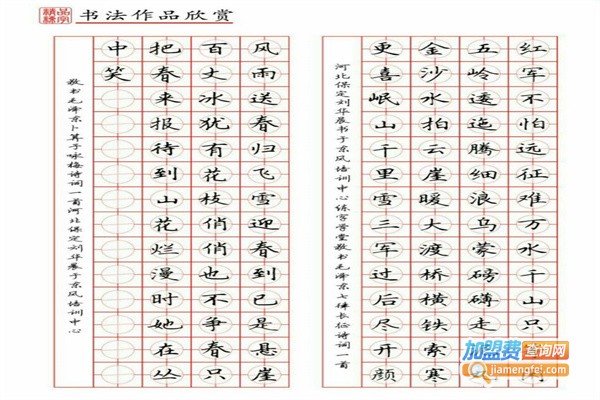 书法作品欣赏
红军不怕远征难万水千山只
五岭逶迤腾细浪乌蒙磅礴走
金沙水拍云崖暖大渡桥横铁索寒
更喜岷山千里雪三军过后尽开颜
河北保定刘华展书于东风培训中心练字学堂敬书毛泽东七律长征诗词一首
风雨送春归飞雪迎春到已是悬崖
百丈冰犹有花枝俏俏也不争春只
把春来报待到山花烂漫时她在丛
中笑
敬书毛泽东卜算子咏梅诗词一首河北保定刘华展于东风培训中心
加盟费查询网
jiamengfei.com